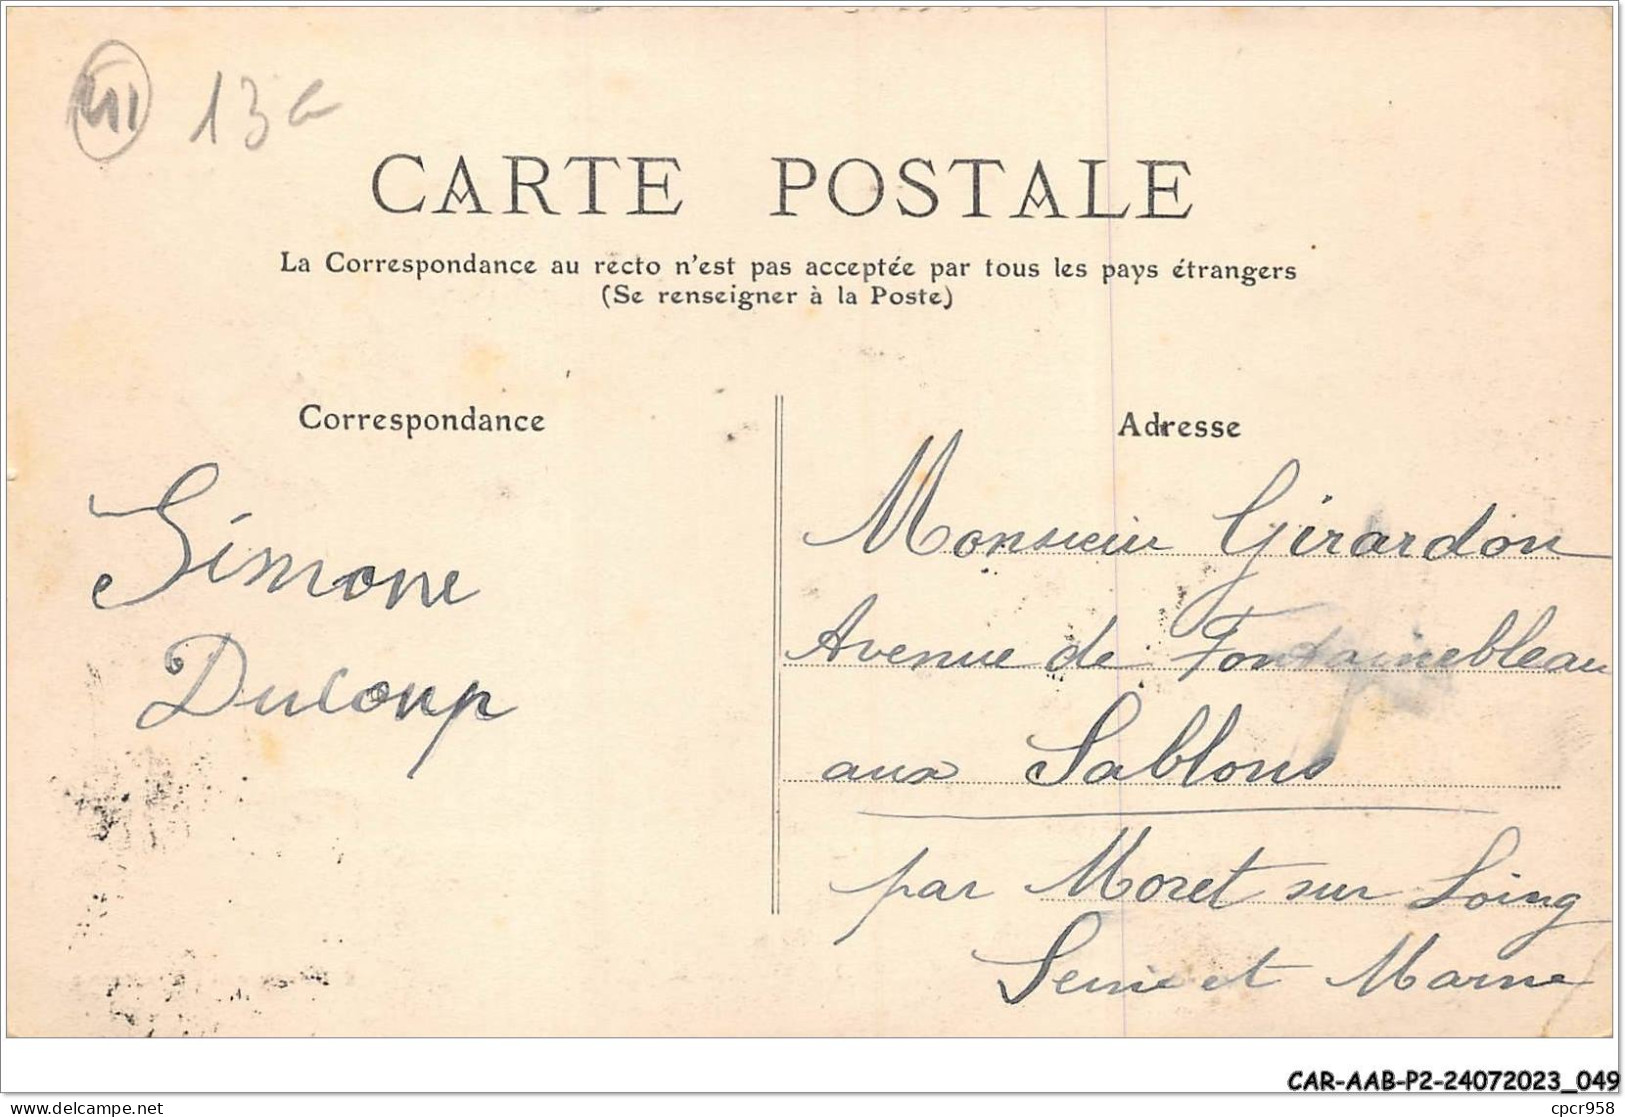 41 13e
CARTE POSTALE
La Correspondance au recto n'est pas acceptée par tous les pays étrangers
(Se renseigner à la Poste)
Correspondance
Simone
Ducoup
Adresse
Monsieur Girardon
Avenue de Fontainebleau
aux Sablons
par Moret sur Loing
Seine et Marne
CAR-AAB-P2-24072023_049
cpcr958